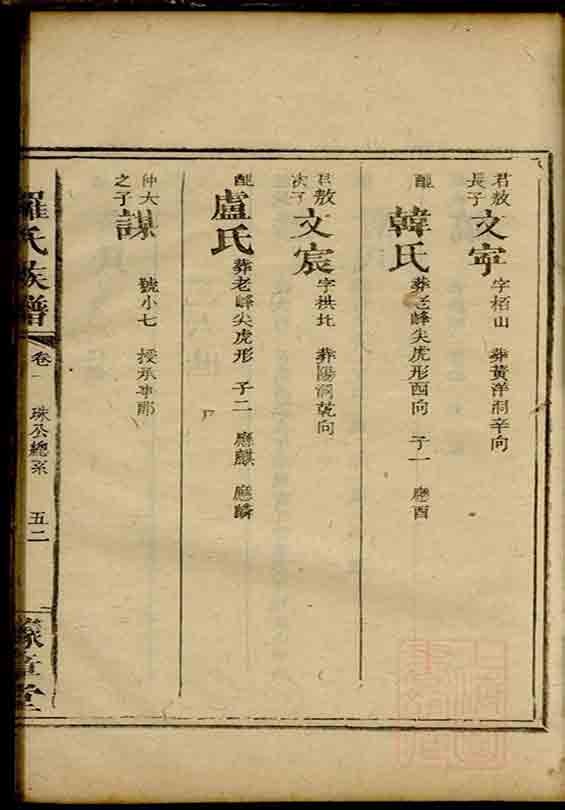 君敖長子 文寧 字栢山 葬黃洋洞辛向
配 韓氏 葬老峰尖虎形酉向 子一 應酉
君敖次子 文宸 字拱北 葬陽洞乾向
配 盧氏 葬老峰尖虎形 子二 應麒 應麟
仲大之子 謀 號小七 授承事郎
羅氏族譜 卷一 珠公總系 五二 豫章堂